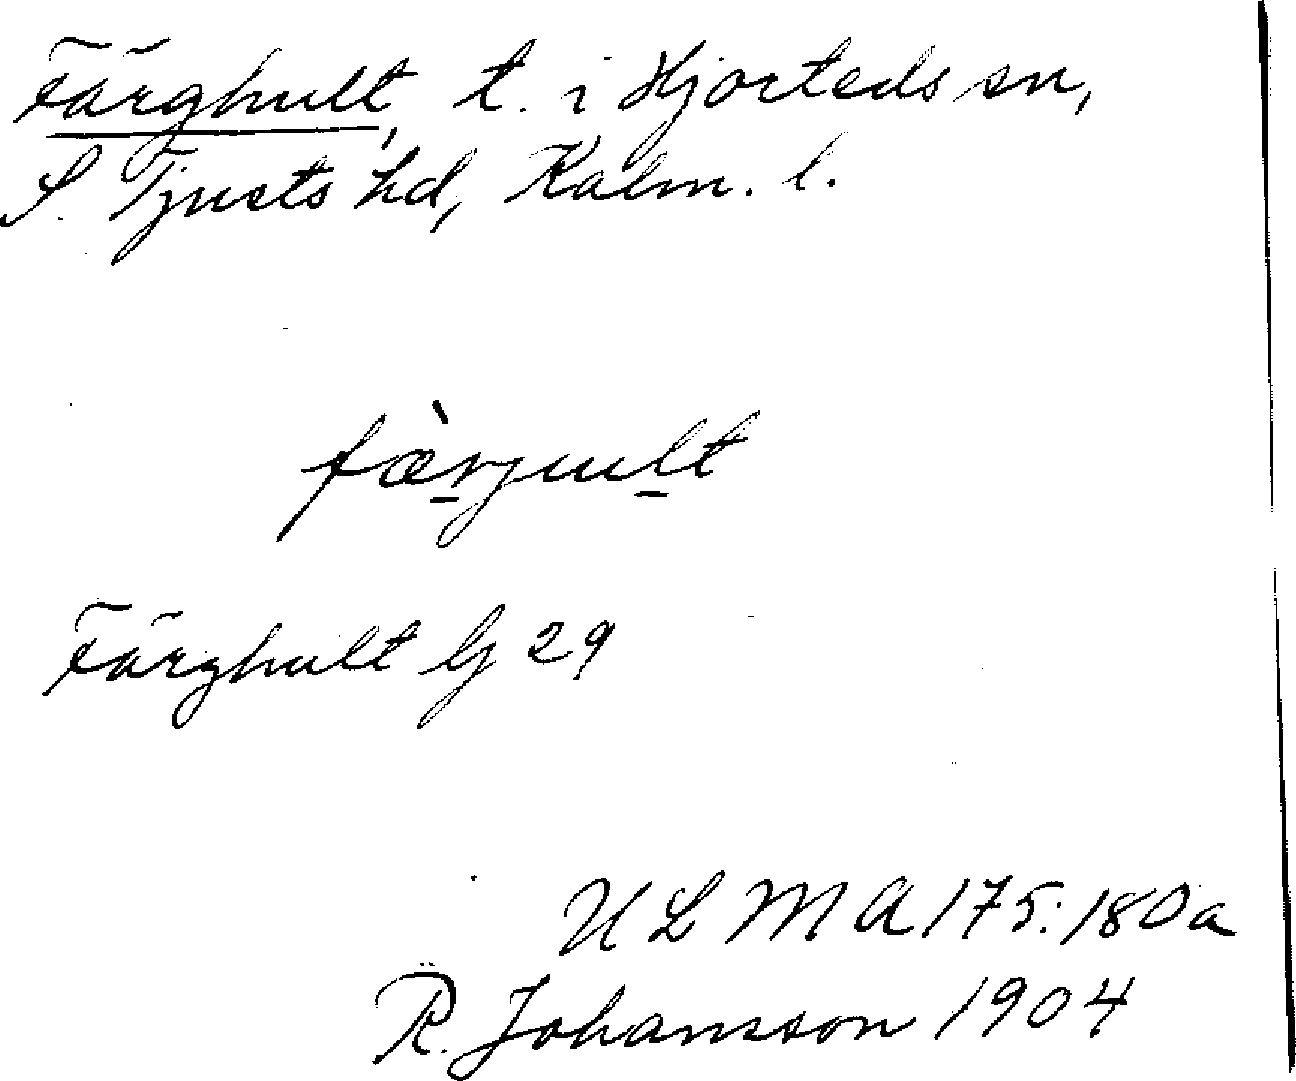 Färghult, t. i Hjorteds sn,
S. Tjusts hd, Kalm. l.
fæ̀rjult
Färghult G 29
ULMA 175:180a
R. Johansson 1904